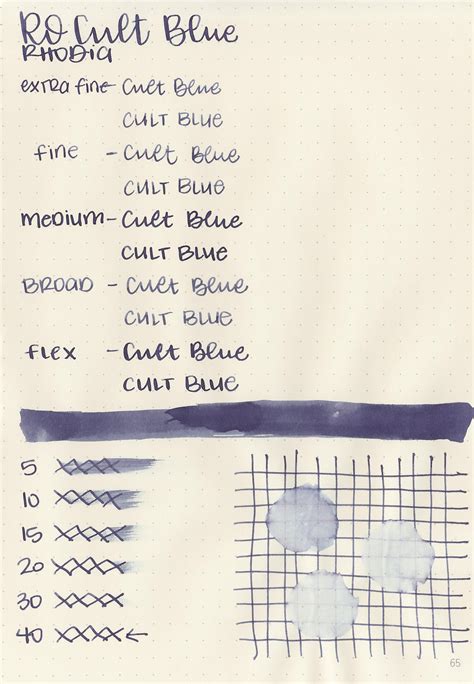 RO Cult Blue
RHODIA
extra fine - Cult Blue
CULT BLUE
fine - Cult Blue
CULT BLUE
medium - Cult Blue
CULT BLUE
BROAD - Cult Blue
CULT BLUE
flex - Cult Blue
CULT BLUE
5 XXXX
10 XXXX
15 XXXX
20 XXXX
30 XXXX
40 XXXX ←
65